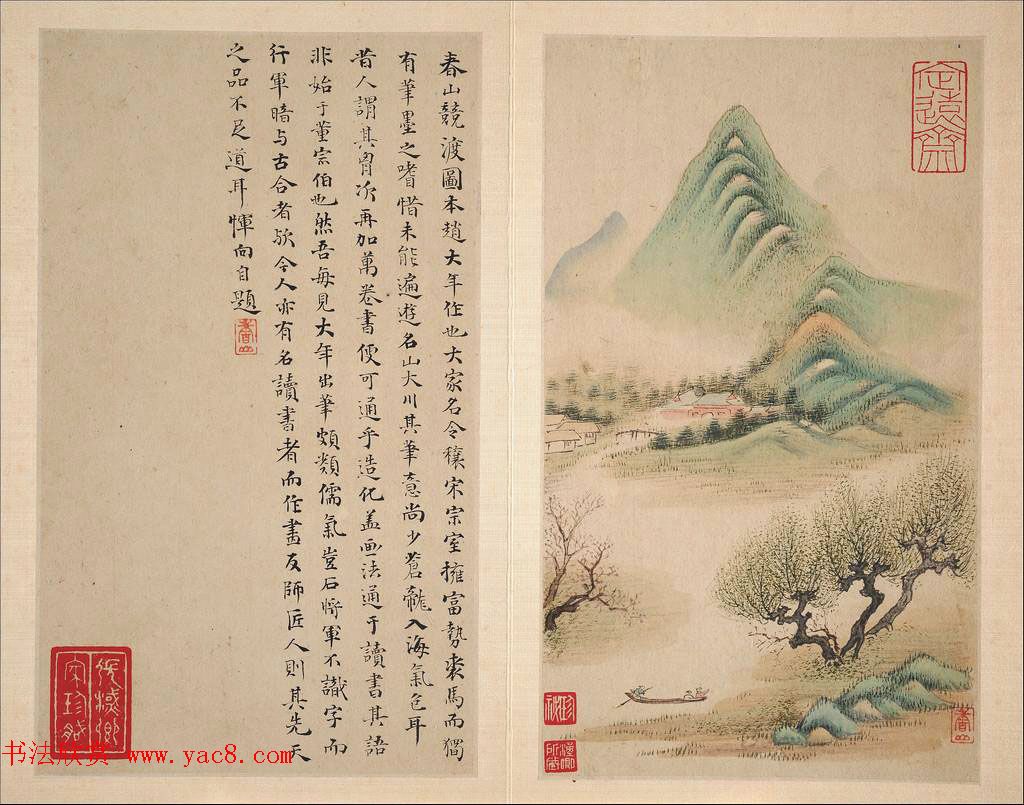 春山競渡圖本趙大年作也大家名令穰宋宗室擁富勢裘馬而獨
有筆墨之嗜惜未能遍遊名山大川其筆意尚少蒼龍入海氣色耳
昔人謂其胷次再加萬卷書便可通乎造化盖画法通于讀書其語
非始于董宗伯也然吾每見大年出筆頗類儒氣豈右將軍不識字而
行軍暗与古合者欤今人亦有名讀書者而作畫反師匠人則其先天
之品不足道耳惲向自題
定遠齋
書法欣赏 www.yac8.com